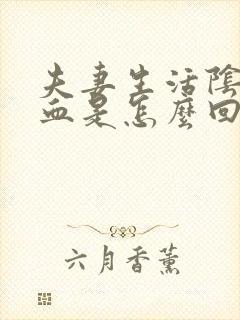 夫妻生活陰
血是怎麼回
六月香薰